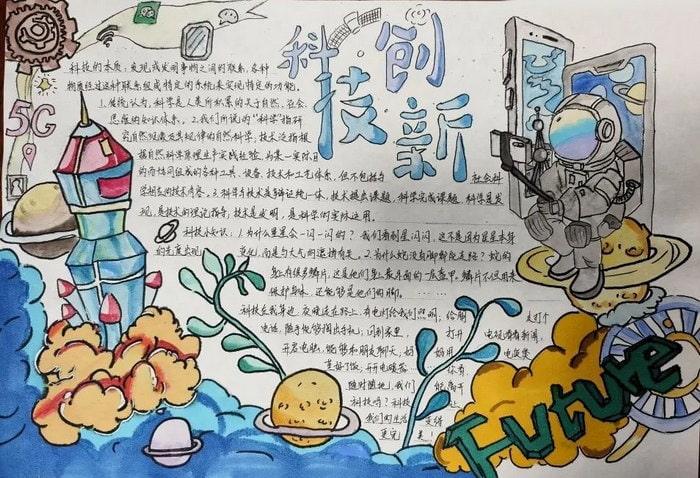 科技·创新
5G
科技的本质：发现或发明事物之间的联系，各种
物质通过这种联系组成特定的系统来实现特定的功能。
1.传统认为，科学是人类所积累的关于自然，社会，
思维的知识体系。2.我们所说的“科学”指研
究自然现象及其规律的自然科学；技术泛指根
据自然科学原理生产实践经验，为某一实际目
的而协同组成的各种工具、设备、技术和工艺体系，但不包括与社会科
学相关的技术内容。3.科学与技术是辩证统一体，技术提出课题，科学完成课题，科学是发
现，是技术的理论指导；技术是发明，是科学的实际运用。
科技小知识：1.为什么星星会一闪一闪的？我们看到星闪闪，这不是因为星星本身
的光度出现变化，而是与大气的遮挡有关。2.为什么蛇没有脚都能走路？蛇的
身上有很多鳞片，这是他们身上最外面的一层盔甲。鳞片不但用来
保护身体，还能够是他们的脚。
科技在我身边，夜晚走在路上，有电灯给我们照明，给朋友打个
电话，随手能够掏出手机，闲时家里，打开电视看看新闻，
开启电脑，能够和朋友聊天，好好用电饭煲
随时随地，我们
科技吗？科技
我们的生活变得
更完美！
Future